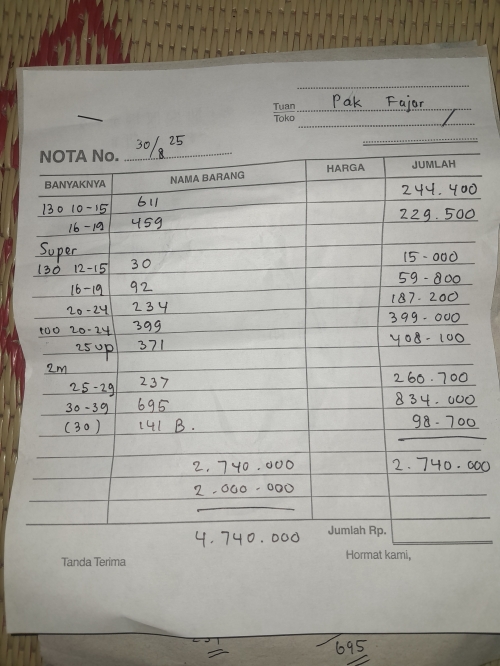 Tuan Pak Fajar
Toko
NOTA No. 30/8 25
BANYAKNYA NAMA BARANG HARGA JUMLAH
130 10-15 611 244.400
16-19 459 229.500
Super
130 12-15 30 15-000
16-19 92 59-800
20-24 234 187.200
100 20-24 399 399-000
25 up 371 408-100
2m
25-29 237 260.700
30-39 695 834.000
(30) 141 B. 98-700
2.740.000 2.740.000
2.000-000
4.740.000 Jumlah Rp.
Tanda Terima Hormat kami,
695